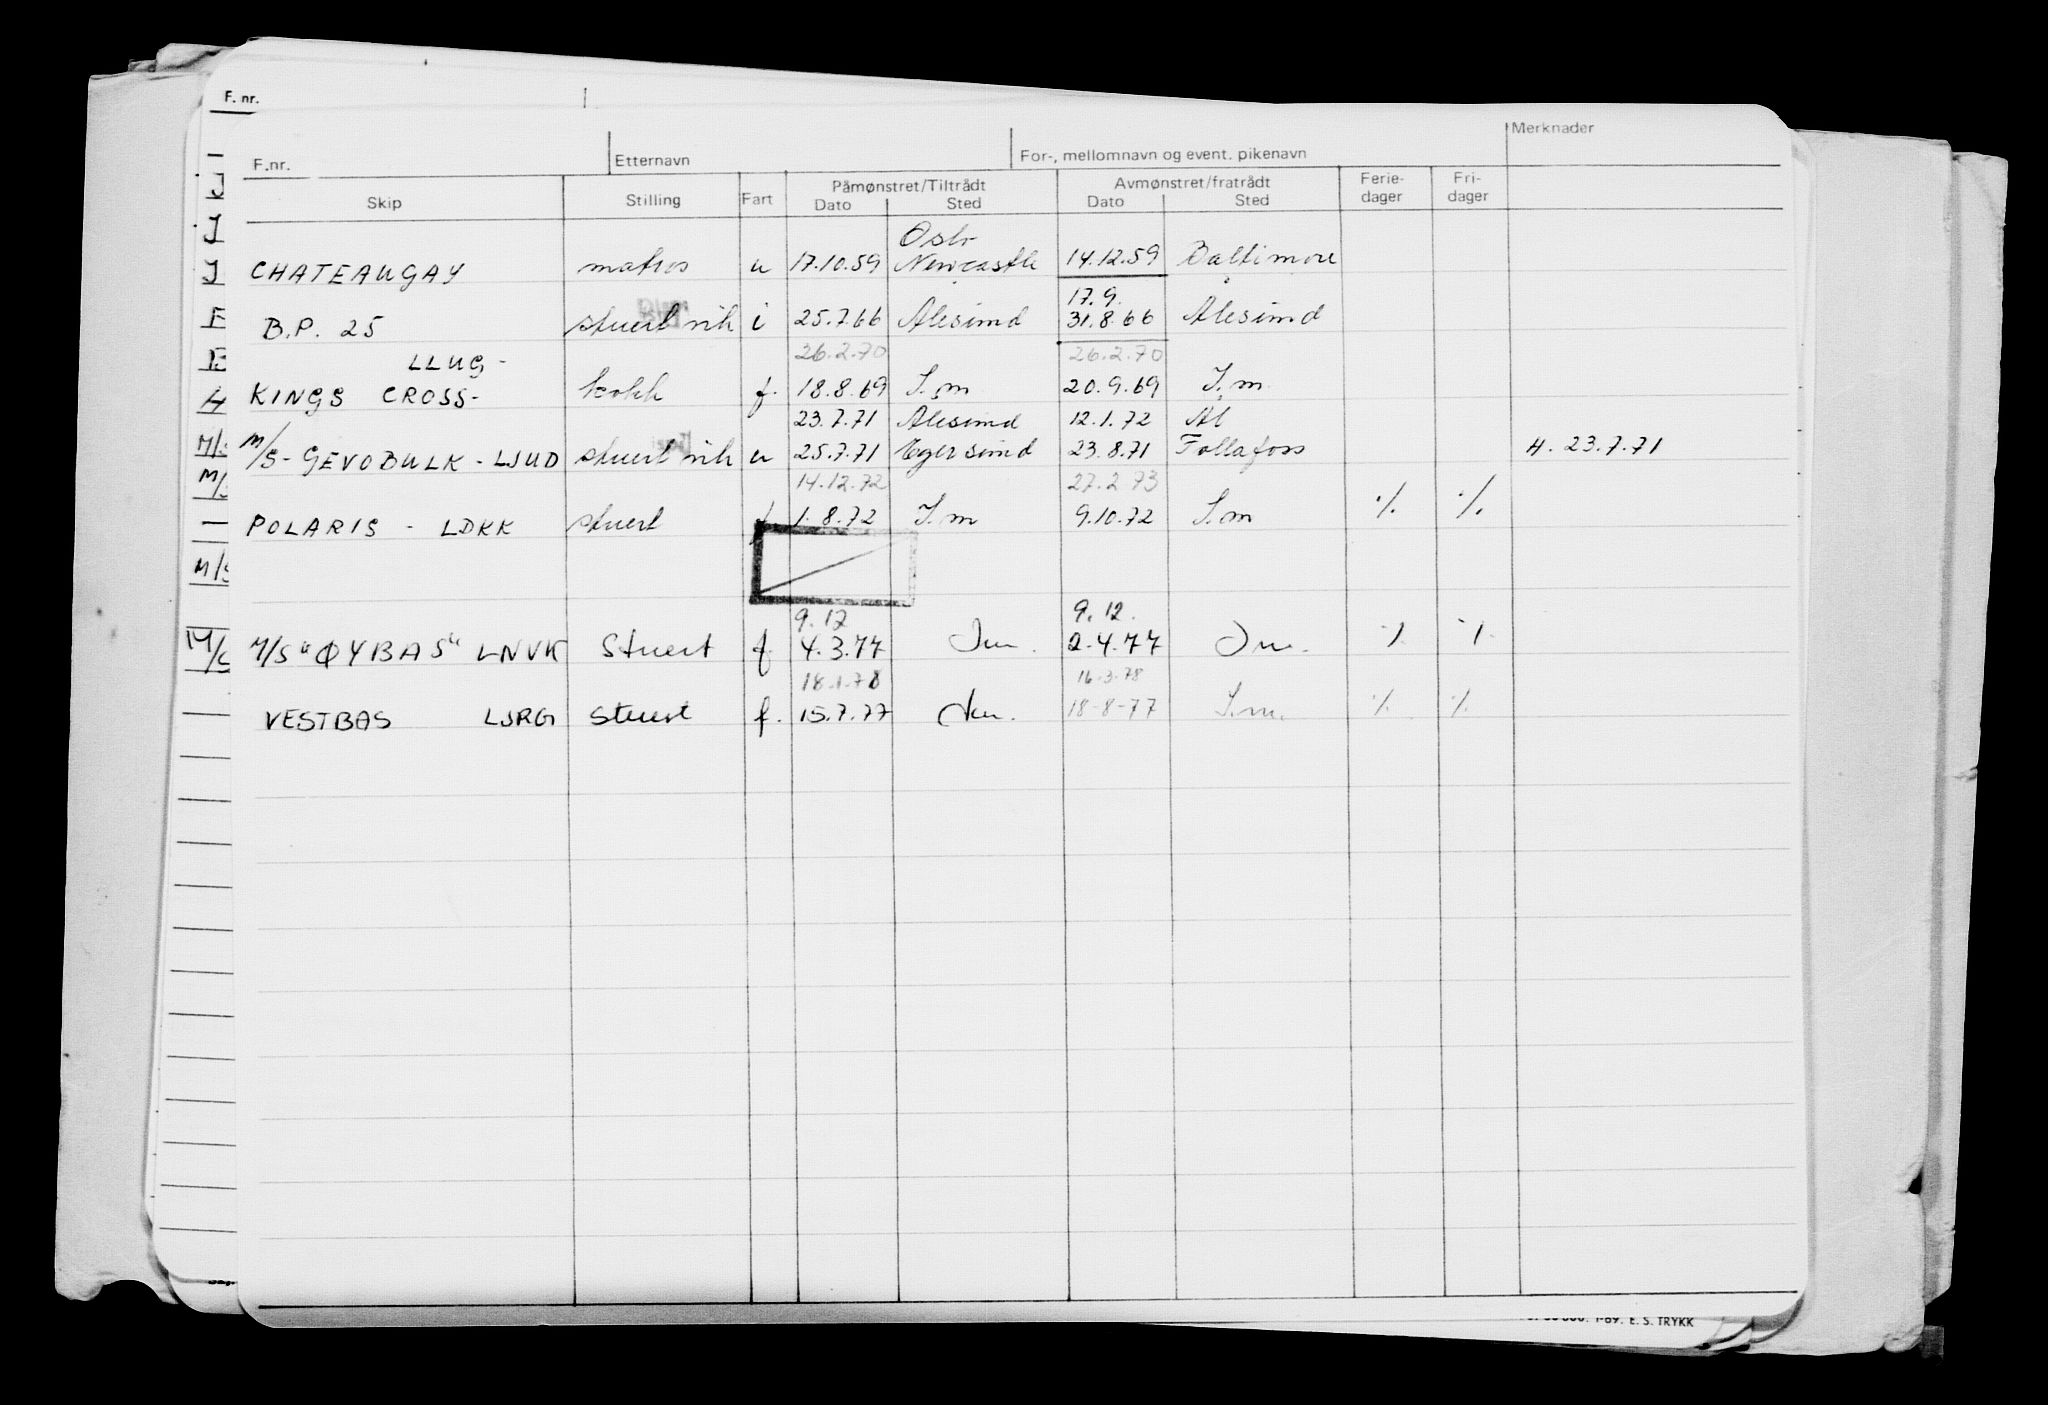 F. nr.
Merknader
F.nr. Etternavn For-, mellomnavn og event. pikenavn
Påmønstret/Tiltrådt Avmønstret/fratrådt Ferie- Fri-
Skip Stilling Fart Dato Sted Dato Sted dager dager
Oslo
CHATEAUGAY matros u 17.10.59 Newcastle 14.12.59 Baltimore
17.9.
B.P. 25 stuert vik i 25.7.66 Ålesund 31.8.66 Ålesund
LLUG - 26.2.70 26.2.70
KINGS CROSS- kokk f. 18.8.69 S.m 20.9.69 S.m
23.7.71 Ålesund 12.1.72 Ål
M/S- GEVOBULK - LJUD stuert vik u 25.7.71 Egersund 23.8.71 Follafoss H. 23.7.71
14.12.72 27.2.73
POLARIS - LDKK stuert f 1.8.72 S.m 9.10.72 S.m ٪ ٪
9.12 9.12.
M/S "ØYBAS" LNVK Stuert f. 4.3.77 2.4.77 ٪ ٪
18.1.78 16.3.78
VESTBAS LJRG stuert f. 15.7.77 18-8-77 S.m. ٪ ٪
1-69. E. S. TRYKK